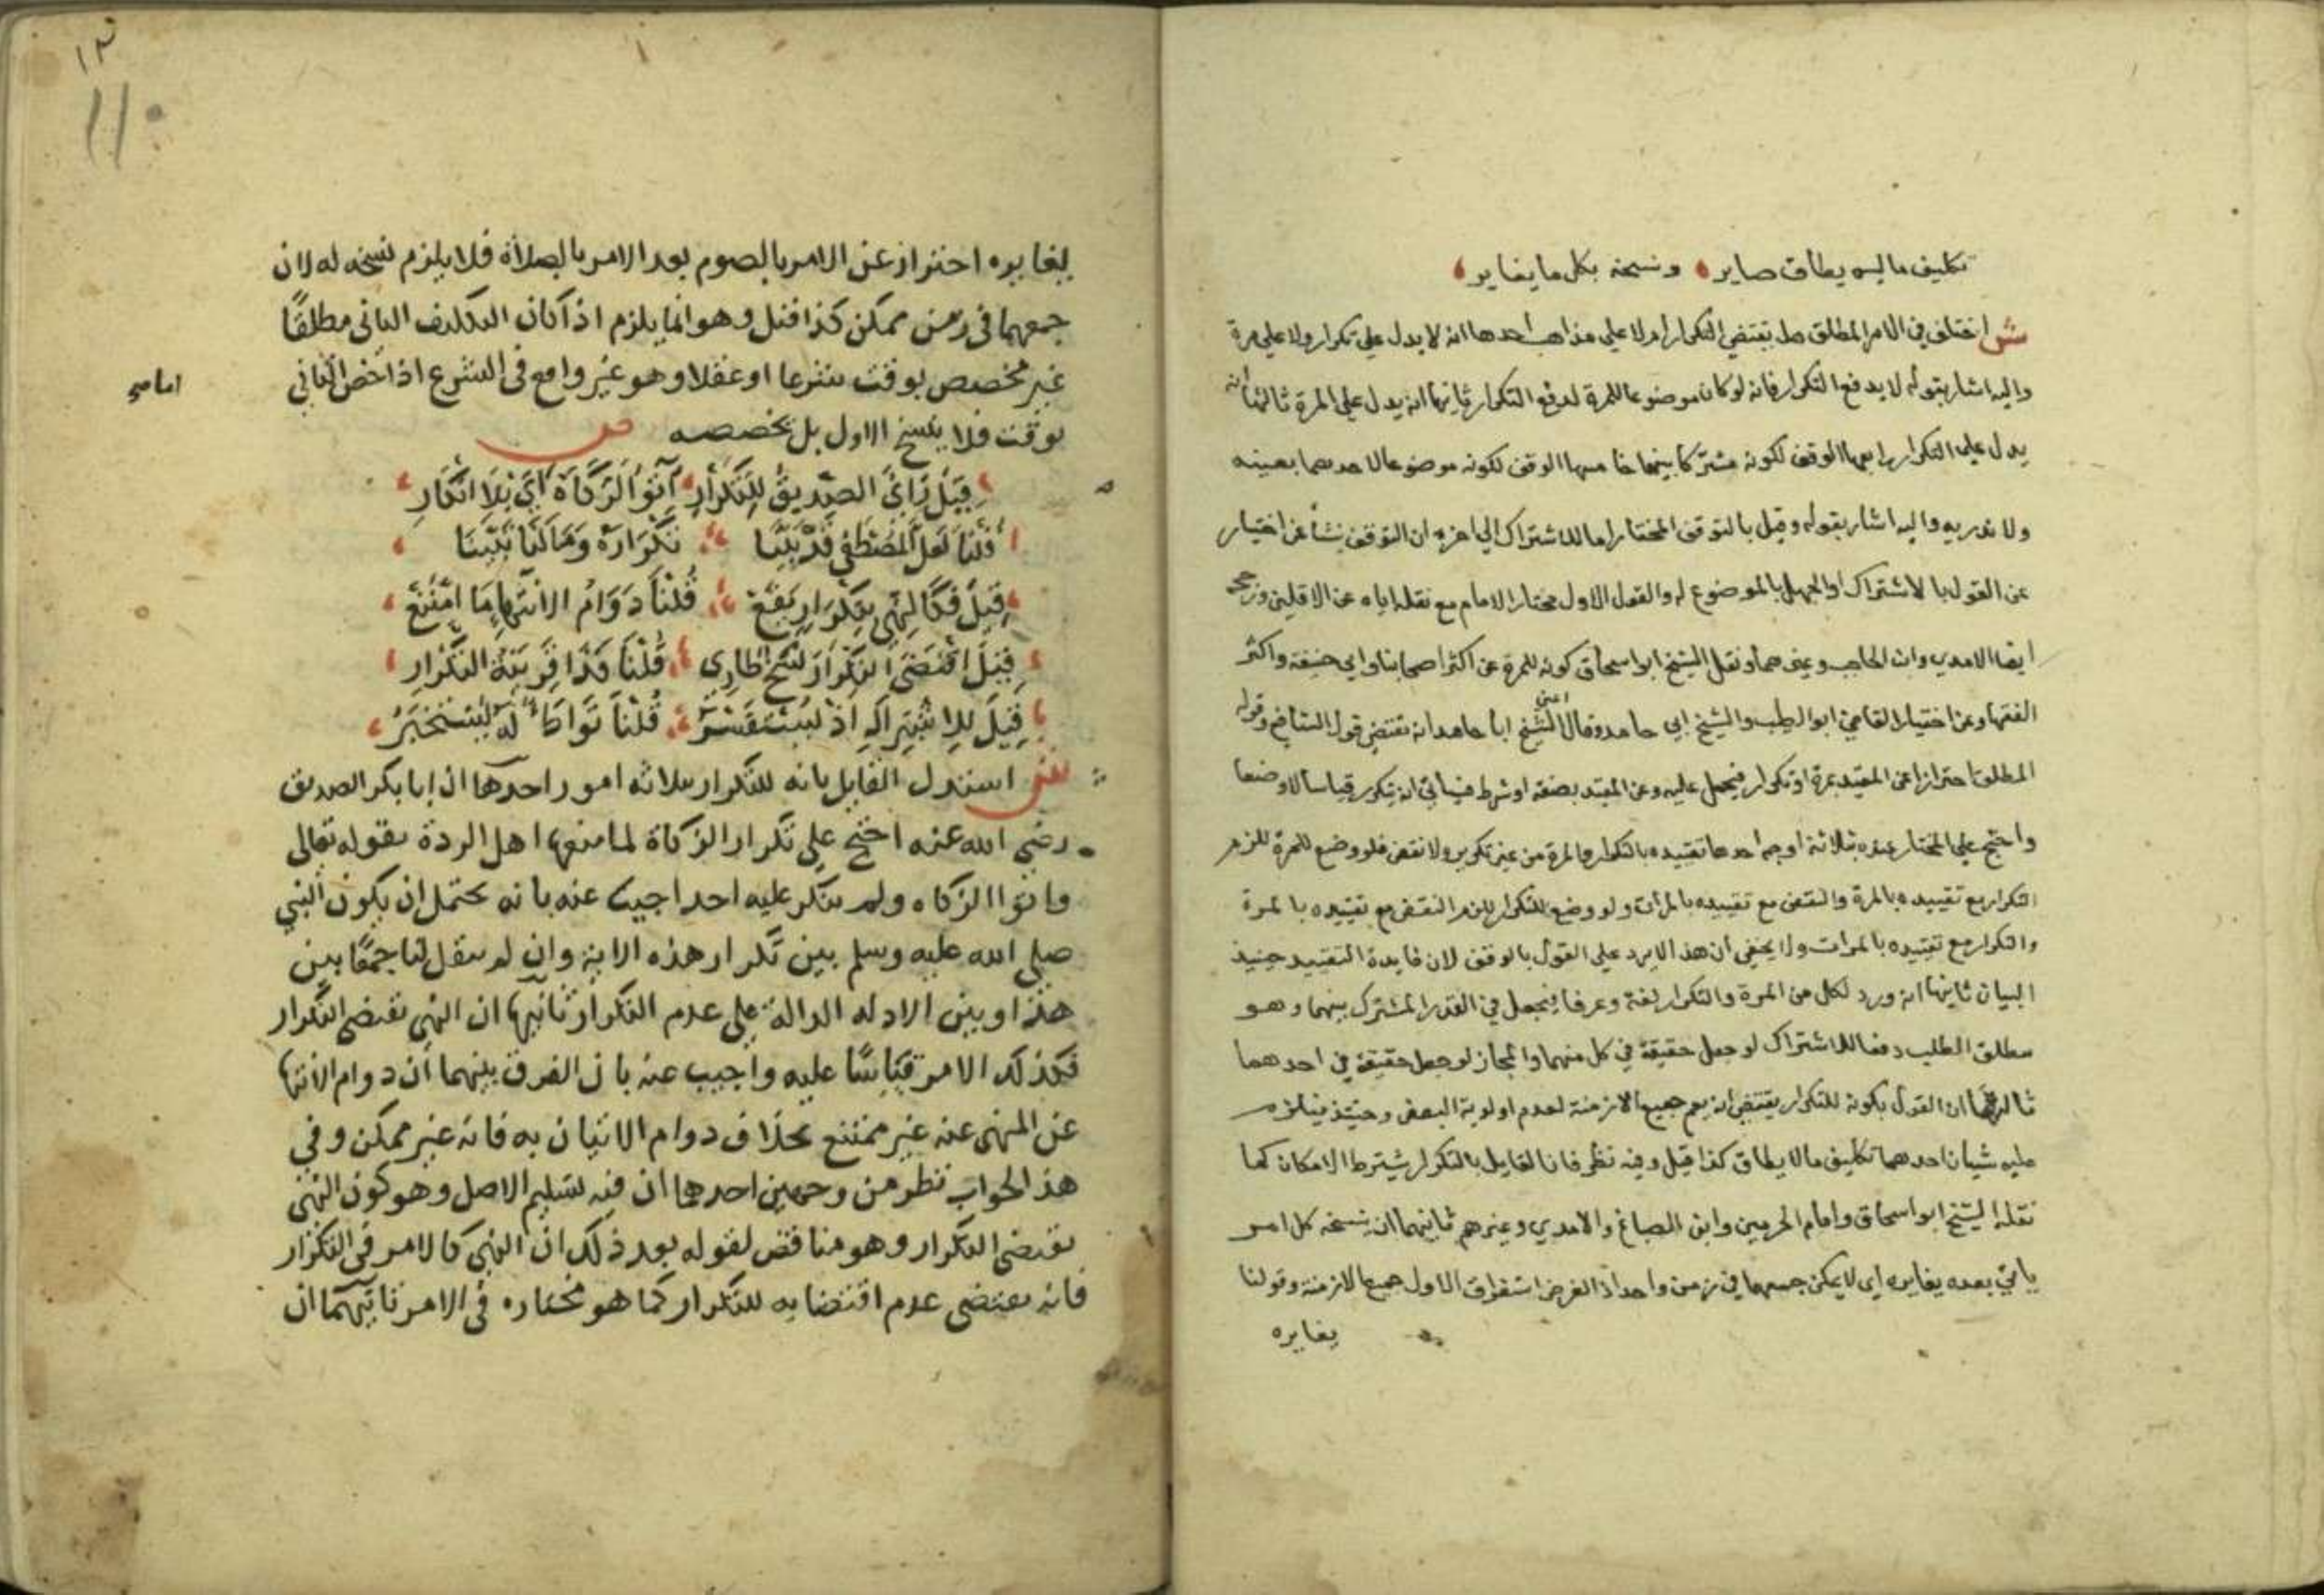 تكليف ما ليس يطاق صاير ونسخه بكل ما يغاير
ش اختلف في الامر المطلق هل يقتضي التكرار ام لا علي مذاهب احدها انه لا يدل علي تكرار ولا علي مرة
واليه اشار بقوله لا يدفع التكرار فانه لو كان موضوعا للمرة لدفع التكرار ثانيها انه يدل علي المرة ثالثها انه
يدل علي التكرار رابعها الوقف لكونه مشتركا بينهما خامسها الوقف لكونه موضوعا لاحدهما بعينه
ولا ندريه واليه اشار بقوله وقيل بالتوقف المختار اما للاشتراك الي اخره ان التوقف نشأ عن اختيار
عن القول بالاشتراك او الجهل بالموضوع له والقول الاول مختار الامام مع نقله اياه عن الاقلين ورجحه
ايضا الامدي وابن الحاجب وغيرهما ونقل الشيخ ابو اسحاق كونه للمرة عن اكثر اصحابنا وابي حنيفة واكثر
الفقها وعن اختيار القاضي ابو الطيب والشيخ ابي حامد وقال الشيخ اعني ابا حامد انه مقتضي قول الشافعي وقوله
المطلق احترازا عن المقيد بمرة او تكرار فيحمل عليه وعن المقيد بصفة او شرط فسياتي انه يتكرر قياسا لا وضعا
واحتج علي المختار عنده بثلاثة اوجه احدها تقييده بالتكرار والمرة من غير تكرير ولا نقض فلو وضع للمرة للزم
التكرار مع تقييده بالمرة والنقض مع تقييده بالمرات ولو وضع للتكرار للزم النقض مع تقييده بالمرة
والتكرار مع تقييده بالمرات ولا يخفي ان هذا لا يرد علي القول بالوقف لان فايدة التقييد حينيذ
البيان ثانيها انه ورد لكل من المرة والتكرار لغة وعرفا فيجعل في القدر المشترك بينهما وهو
مطلق الطلب دفعا للاشتراك لو جعل حقيقة في كل منهما والمجاز لو جعل حقيقة في احدهما
ثالثها ان القول بكونه للتكرار يقتضي ان يعم جميع الازمنة لعدم اولوية البعض وحينئذ فيلزم
عليه شيان احدهما تكليف ما لا يطاق كذا قيل وفيه نظر فان القايل بالتكرار يشترط الامكان كما
نقله الشيخ ابو اسحاق وامام الحرمين وابن الصباغ والامدي وغيرهم ثانيهما ان نسخه كل امر
ياتي بعده يغايره اي لا يمكن جمعهما في زمن واحد اذ الغرض استغراق الاول جميع الازمنة وقولنا
يغايره
١٣
١١
يغايره احتراز عن الامر بالصوم بعد الامر بالصلاة فلا يلزم نسخه له لان
جمعهما في زمن ممكن كذا قيل وهو انما يلزم اذا كان التكليف الثاني مطلقًا
غير مخصص بوقت شرعا او عقلا وهو غير واقع في الشرع اذا خص الثاني
بوقت فلا ينسخ الاول بل يخصصه ص
قِيلَ رَايُ الصِّدِّيقِ لِلتَّكْرَارِ آتُوا الزَّكَاةَ اَيْ بِلَا انْكَارِ
قُلْنَا لَعَلَّ الْمُصْطَفَى قَدْ بَيَّنَا تَكْرَارَهُ وَمَا لَنَا تَبَيَّنَا
قِيلَ فَكَالنَّهْيِ بِتَكْرَارٍ يَقَعْ قُلْنَا دَوَامُ الانْتِهَا مَا امْتَنَعْ
قِيلَ اقْتَضَى التَّكْرَارَ نَسْخٌ طَارِي قُلْنَا فَذَا قَرِينَةُ التَّكْرَارِ
قِيلَ لِلِاشْتِرَاكِ اذْ يُسْتَفْسَرُ قُلْنَا تَوَاطَا لَهُ يُسْتَخْبَرُ
ش استدل القايل بانه للتكرار بثلاثة امور احدها ان ابا بكر الصديق
رضي الله عنه احتج علي تكرار الزكاة لما منعها اهل الردة بقوله تعالي
واتوا الزكاه ولم ينكر عليه احد اجيب عنه بانه يحتمل ان يكون النبي
صلي الله عليه وسلم بين تكرار هذه الاية وان لم ينقل لنا جمعًا بين
هذا وبين الادلة الدالة علي عدم التكرار ثانيها ان النهي يقتضي التكرار
فكذلك الامر قياسًا عليه واجيب عنه بان الفرق بينهما ان دوام الانتها
عن المنهي عنه غير ممتنع بخلاف دوام الاتيان به فانه غير ممكن وفي
هذا الجواب نظر من وجهين احدهما ان فيه تسليم الاصل وهو كون النهي
يقتضي التكرار وهو مناقض لقوله بعد ذلك ان النهي كالامر في التكرار
فانه يقتضي عدم اقتضايه للتكرار كما هو مختاره في الامر ثانيهما ان